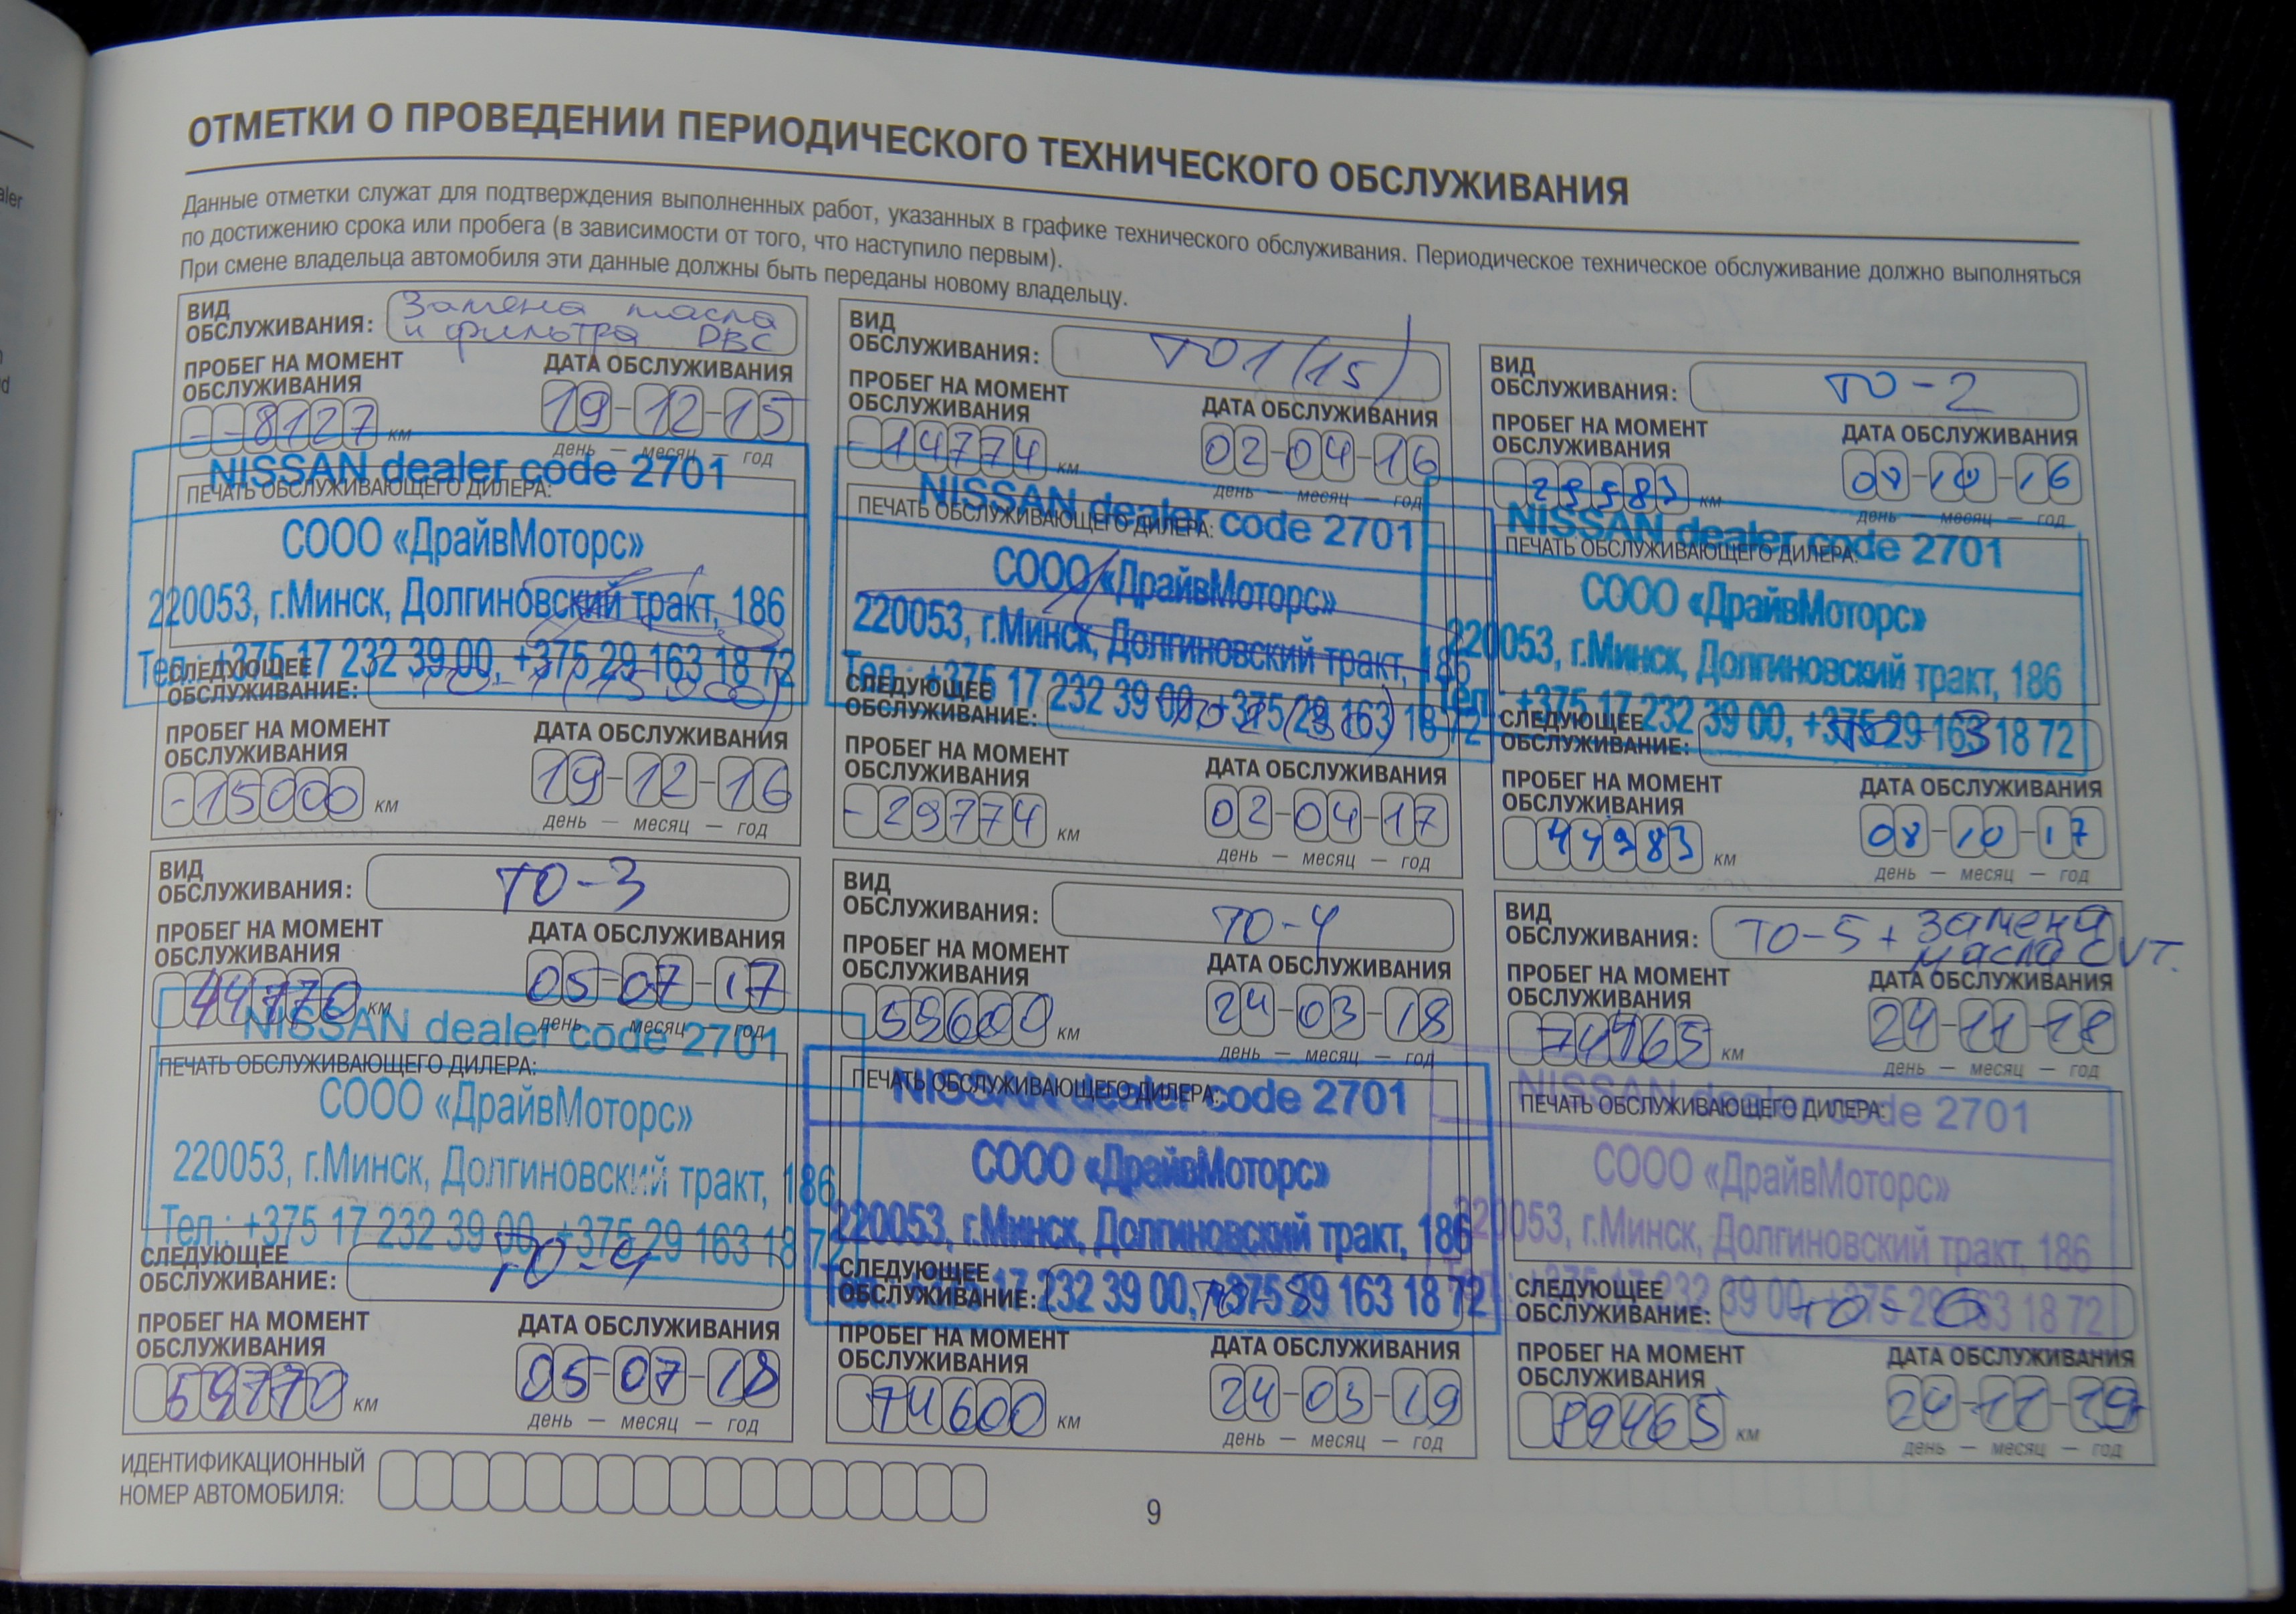 ОТМЕТКИ О ПРОВЕДЕНИИ ПЕРИОДИЧЕСКОГО ТЕХНИЧЕСКОГО ОБСЛУЖИВАНИЯ
Данные отметки служат для подтверждения выполненных работ, указанных в графике технического обслуживания. Периодическое техническое обслуживание должно выполняться
по достижению срока или пробега (в зависимости от того, что наступило первым).
При смене владельца автомобиля эти данные должны быть переданы новому владельцу.
ВИД
ОБСЛУЖИВАНИЯ: Замена масла
и фильтра ДВС
ПРОБЕГ НА МОМЕНТ
ОБСЛУЖИВАНИЯ
ДАТА ОБСЛУЖИВАНИЯ
--8127 км
19-12-15
день — месяц — год
NISSAN dealer code 2701
ПЕЧАТЬ ОБСЛУЖИВАЮЩЕГО ДИЛЕРА:
СООО «ДрайвМоторс»
220053, г.Минск, Долгиновский тракт, 186
Тел.: +375 17 232 39 00, +375 29 163 18 72
СЛЕДУЮЩЕЕ
ОБСЛУЖИВАНИЕ: ТО-1(15 000)
ПРОБЕГ НА МОМЕНТ
ОБСЛУЖИВАНИЯ
ДАТА ОБСЛУЖИВАНИЯ
-15000 км
19-12-16
день — месяц — год
ВИД
ОБСЛУЖИВАНИЯ: ТО1(15)
ПРОБЕГ НА МОМЕНТ
ОБСЛУЖИВАНИЯ
ДАТА ОБСЛУЖИВАНИЯ
-14774 км
02-04-16
день — месяц — год
NISSAN dealer code 2701
ПЕЧАТЬ ОБСЛУЖИВАЮЩЕГО ДИЛЕРА:
СООО «ДрайвМоторс»
220053, г.Минск, Долгиновский тракт, 186
Тел.: +375 17 232 39 00, +375 29 163 18 72
СЛЕДУЮЩЕЕ
ОБСЛУЖИВАНИЕ: ТО2(30)
ПРОБЕГ НА МОМЕНТ
ОБСЛУЖИВАНИЯ
ДАТА ОБСЛУЖИВАНИЯ
-29774 км
02-04-17
день — месяц — год
ВИД
ОБСЛУЖИВАНИЯ: ТО-2
ПРОБЕГ НА МОМЕНТ
ОБСЛУЖИВАНИЯ
ДАТА ОБСЛУЖИВАНИЯ
км
10-16
день — месяц — год
NISSAN dealer code 2701
ПЕЧАТЬ ОБСЛУЖИВАЮЩЕГО ДИЛЕРА:
СООО «ДрайвМоторс»
220053, г.Минск, Долгиновский тракт, 186
Тел.: +375 17 232 39 00, +375 29 163 18 72
СЛЕДУЮЩЕЕ
ОБСЛУЖИВАНИЕ: ТО-3
ПРОБЕГ НА МОМЕНТ
ОБСЛУЖИВАНИЯ
ДАТА ОБСЛУЖИВАНИЯ
44983 км
08-10-17
день — месяц — год
ВИД
ОБСЛУЖИВАНИЯ: ТО-3
ПРОБЕГ НА МОМЕНТ
ОБСЛУЖИВАНИЯ
ДАТА ОБСЛУЖИВАНИЯ
44770 км
05-07-17
день — месяц — год
NISSAN dealer code 2701
ПЕЧАТЬ ОБСЛУЖИВАЮЩЕГО ДИЛЕРА:
СООО «ДрайвМоторс»
220053, г.Минск, Долгиновский тракт, 186
Тел.: +375 17 232 39 00, +375 29 163 18 72
СЛЕДУЮЩЕЕ
ОБСЛУЖИВАНИЕ: ТО-4
ПРОБЕГ НА МОМЕНТ
ОБСЛУЖИВАНИЯ
ДАТА ОБСЛУЖИВАНИЯ
59770 км
05-07-18
день — месяц — год
ВИД
ОБСЛУЖИВАНИЯ: ТО-4
ПРОБЕГ НА МОМЕНТ
ОБСЛУЖИВАНИЯ
ДАТА ОБСЛУЖИВАНИЯ
59600 км
24-03-18
день — месяц — год
NISSAN dealer code 2701
ПЕЧАТЬ ОБСЛУЖИВАЮЩЕГО ДИЛЕРА:
СООО «ДрайвМоторс»
220053, г.Минск, Долгиновский тракт, 186
Тел.: +375 17 232 39 00, +375 29 163 18 72
СЛЕДУЮЩЕЕ
ОБСЛУЖИВАНИЕ: ТО-5
ПРОБЕГ НА МОМЕНТ
ОБСЛУЖИВАНИЯ
ДАТА ОБСЛУЖИВАНИЯ
74600 км
24-03-19
день — месяц — год
ВИД
ОБСЛУЖИВАНИЯ: ТО-5 + замена
масла CVT.
ПРОБЕГ НА МОМЕНТ
ОБСЛУЖИВАНИЯ
ДАТА ОБСЛУЖИВАНИЯ
км
24-11-18
день — месяц — год
NISSAN dealer code 2701
ПЕЧАТЬ ОБСЛУЖИВАЮЩЕГО ДИЛЕРА:
СООО «ДрайвМоторс»
220053, г.Минск, Долгиновский тракт, 186
Тел.: +375 17 232 39 00, +375 29 163 18 72
СЛЕДУЮЩЕЕ
ОБСЛУЖИВАНИЕ: ТО-6
ПРОБЕГ НА МОМЕНТ
ОБСЛУЖИВАНИЯ
ДАТА ОБСЛУЖИВАНИЯ
89465 км
24-11-19
день — месяц — год
ИДЕНТИФИКАЦИОННЫЙ
НОМЕР АВТОМОБИЛЯ:
9